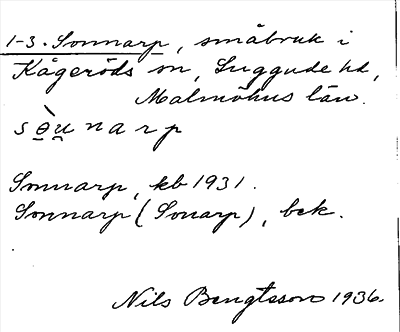 1-3. Sonnarp, småbruk i
Kågeröds sn, Luggude hd,
Malmöhus län.
sòu̯narp
Sonnarp, kb 1931.
Sonnarp (Sonarp), bek.
Nils Bengtsson 1936.